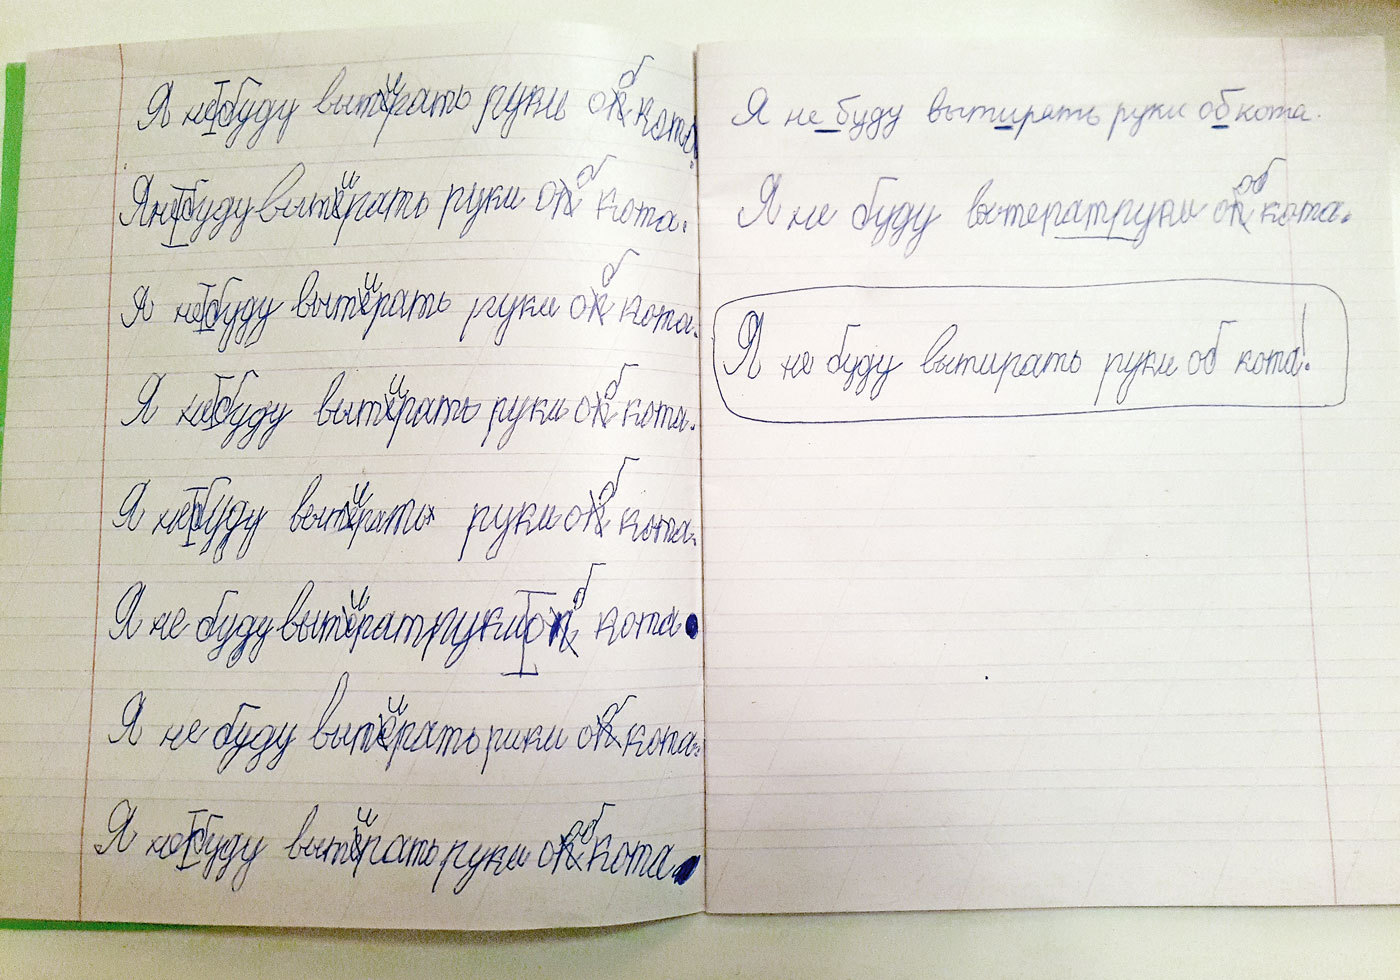 Я не буду вытирать руки об кота.
Я не буду вытирать руки об кота.
Я не буду вытирать руки об кота.
Я не буду вытирать руки об кота.
Я не буду вытирать руки об кота.
Я не буду вытират руки об кота.
Я не буду вытирать руки об кота.
Я не буду вытирать руки об кота.
Я не буду вытирать руки об кота.
Я не буду вытератруки об кота.
Я не буду вытирать руки об кота!